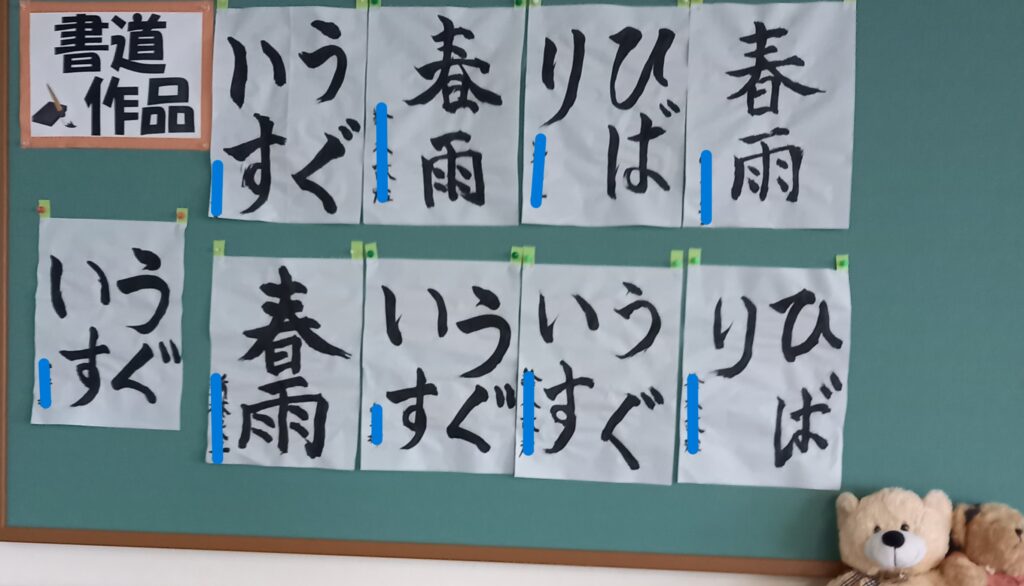 書道
作品
うぐ
いす
春雨
ひば
り
春雨
うぐ
いす
春雨
うぐ
いす
うぐ
いす
ひば
り